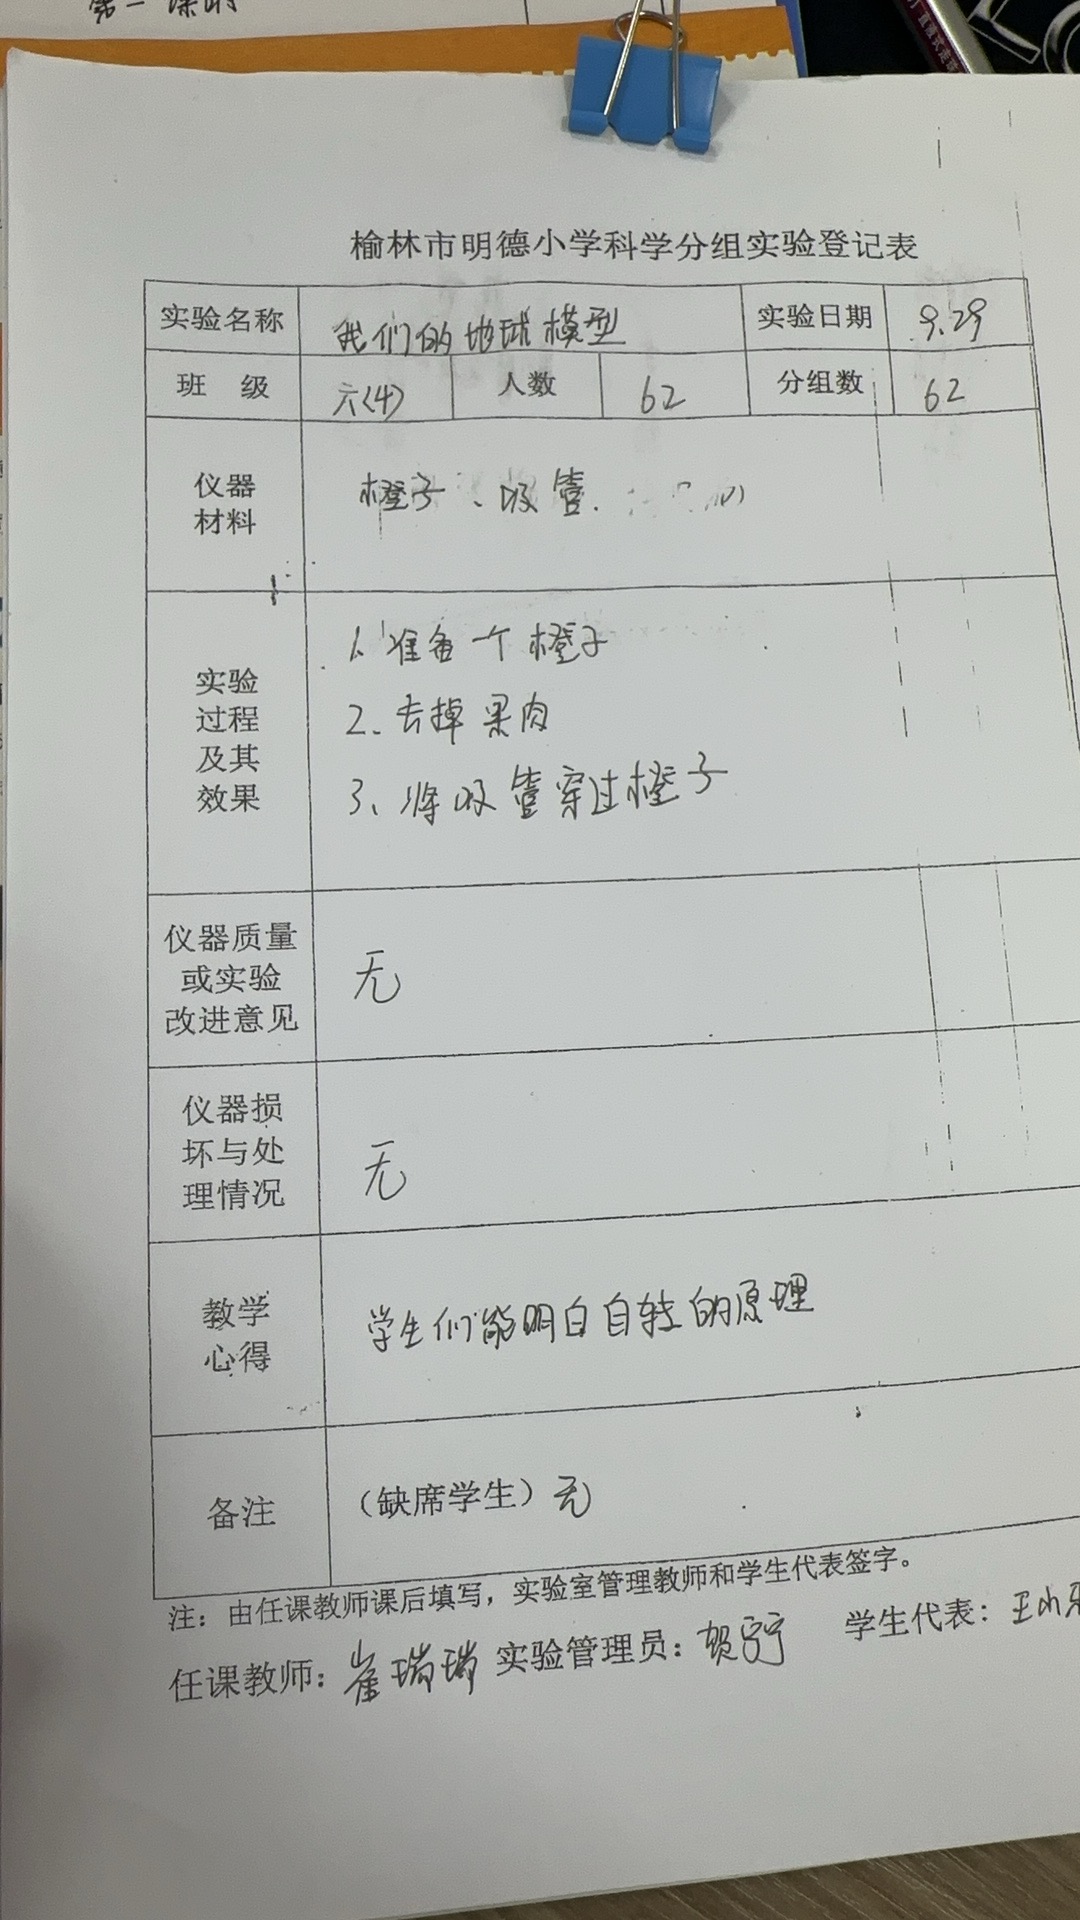 第一课时
榆林市明德小学科学分组实验登记表
实验名称 我们的地球模型 实验日期 9.29
班 级 六(4) 人数 62 分组数 62
仪器
材料
橙子、吸管.
实验
过程
及其
效果
1.准备一个橙子
2、去掉果肉
3、将吸管穿过橙子
仪器质量
或实验
改进意见
无
仪器损
坏与处
理情况
无
教学
心得
学生们能明白自转的原理
备注
（缺席学生）无
注：由任课教师课后填写，实验室管理教师和学生代表签字。
任课教师：崔瑞瑞 实验管理员：贺宁 学生代表：王小